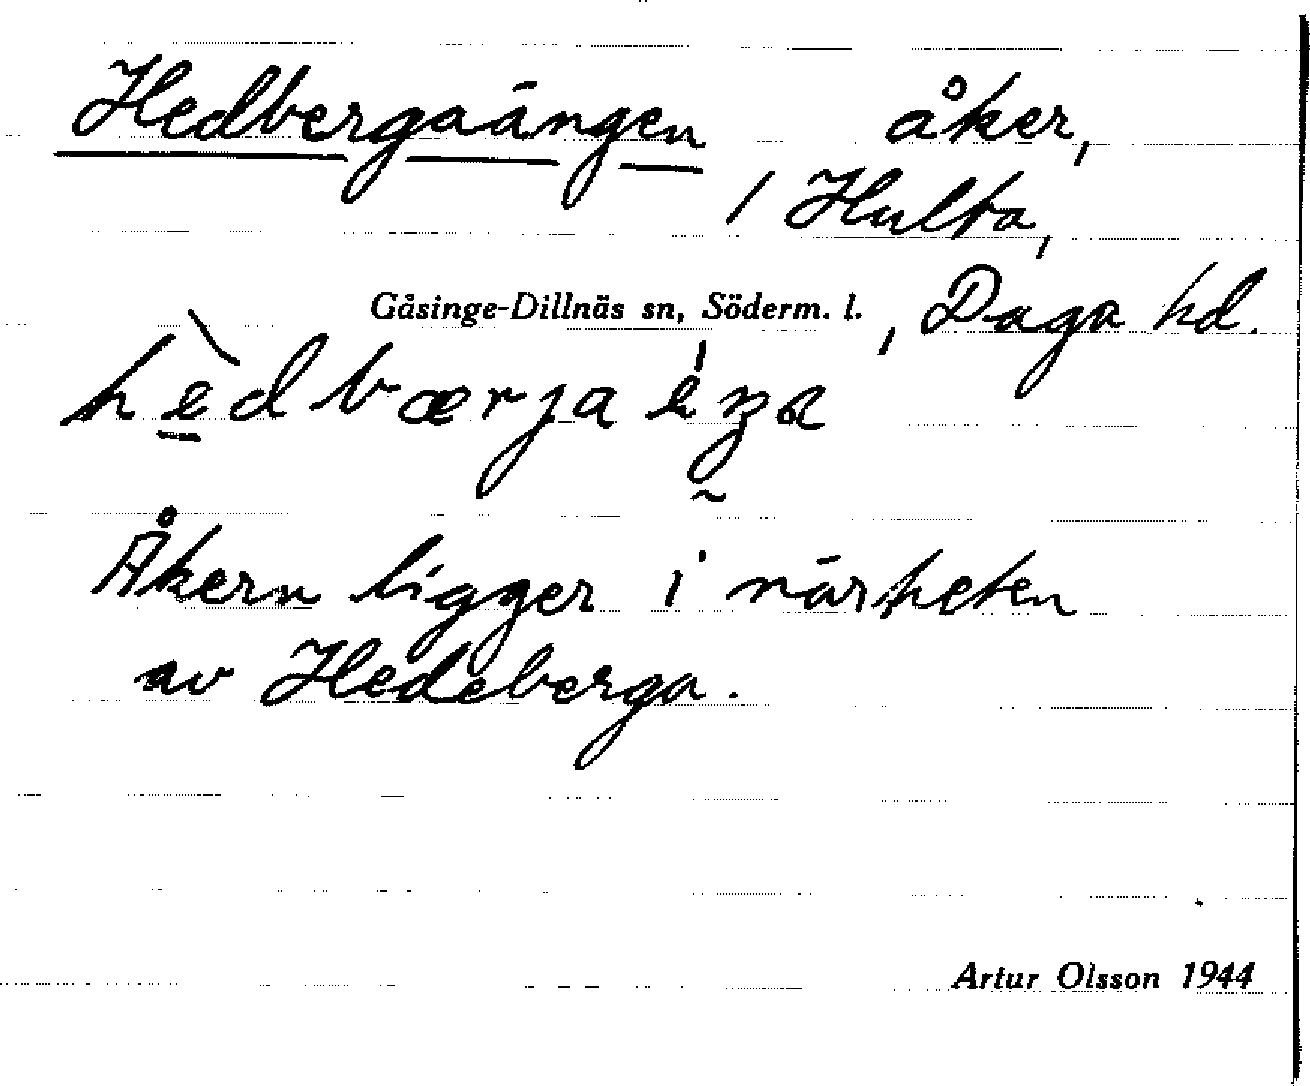 Hedbergaängen åker,
/ Hulta,
Gåsinge-Dillnäs sn, Söderm. l., Daga hd.
hèdbærja
Åkern ligger i närheten
av Hedeberga.
Artur Olsson 1944